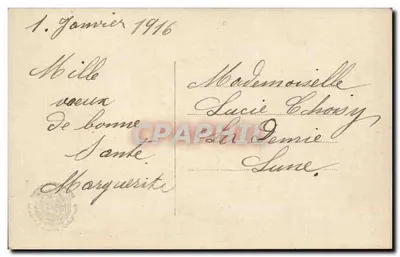 1. Janvier 1916
Mille
voeux
de bonne
Santé.
Marguerite
Mademoiselle
Lucie Choisy
La Demie
Lune.
CPAPHIL